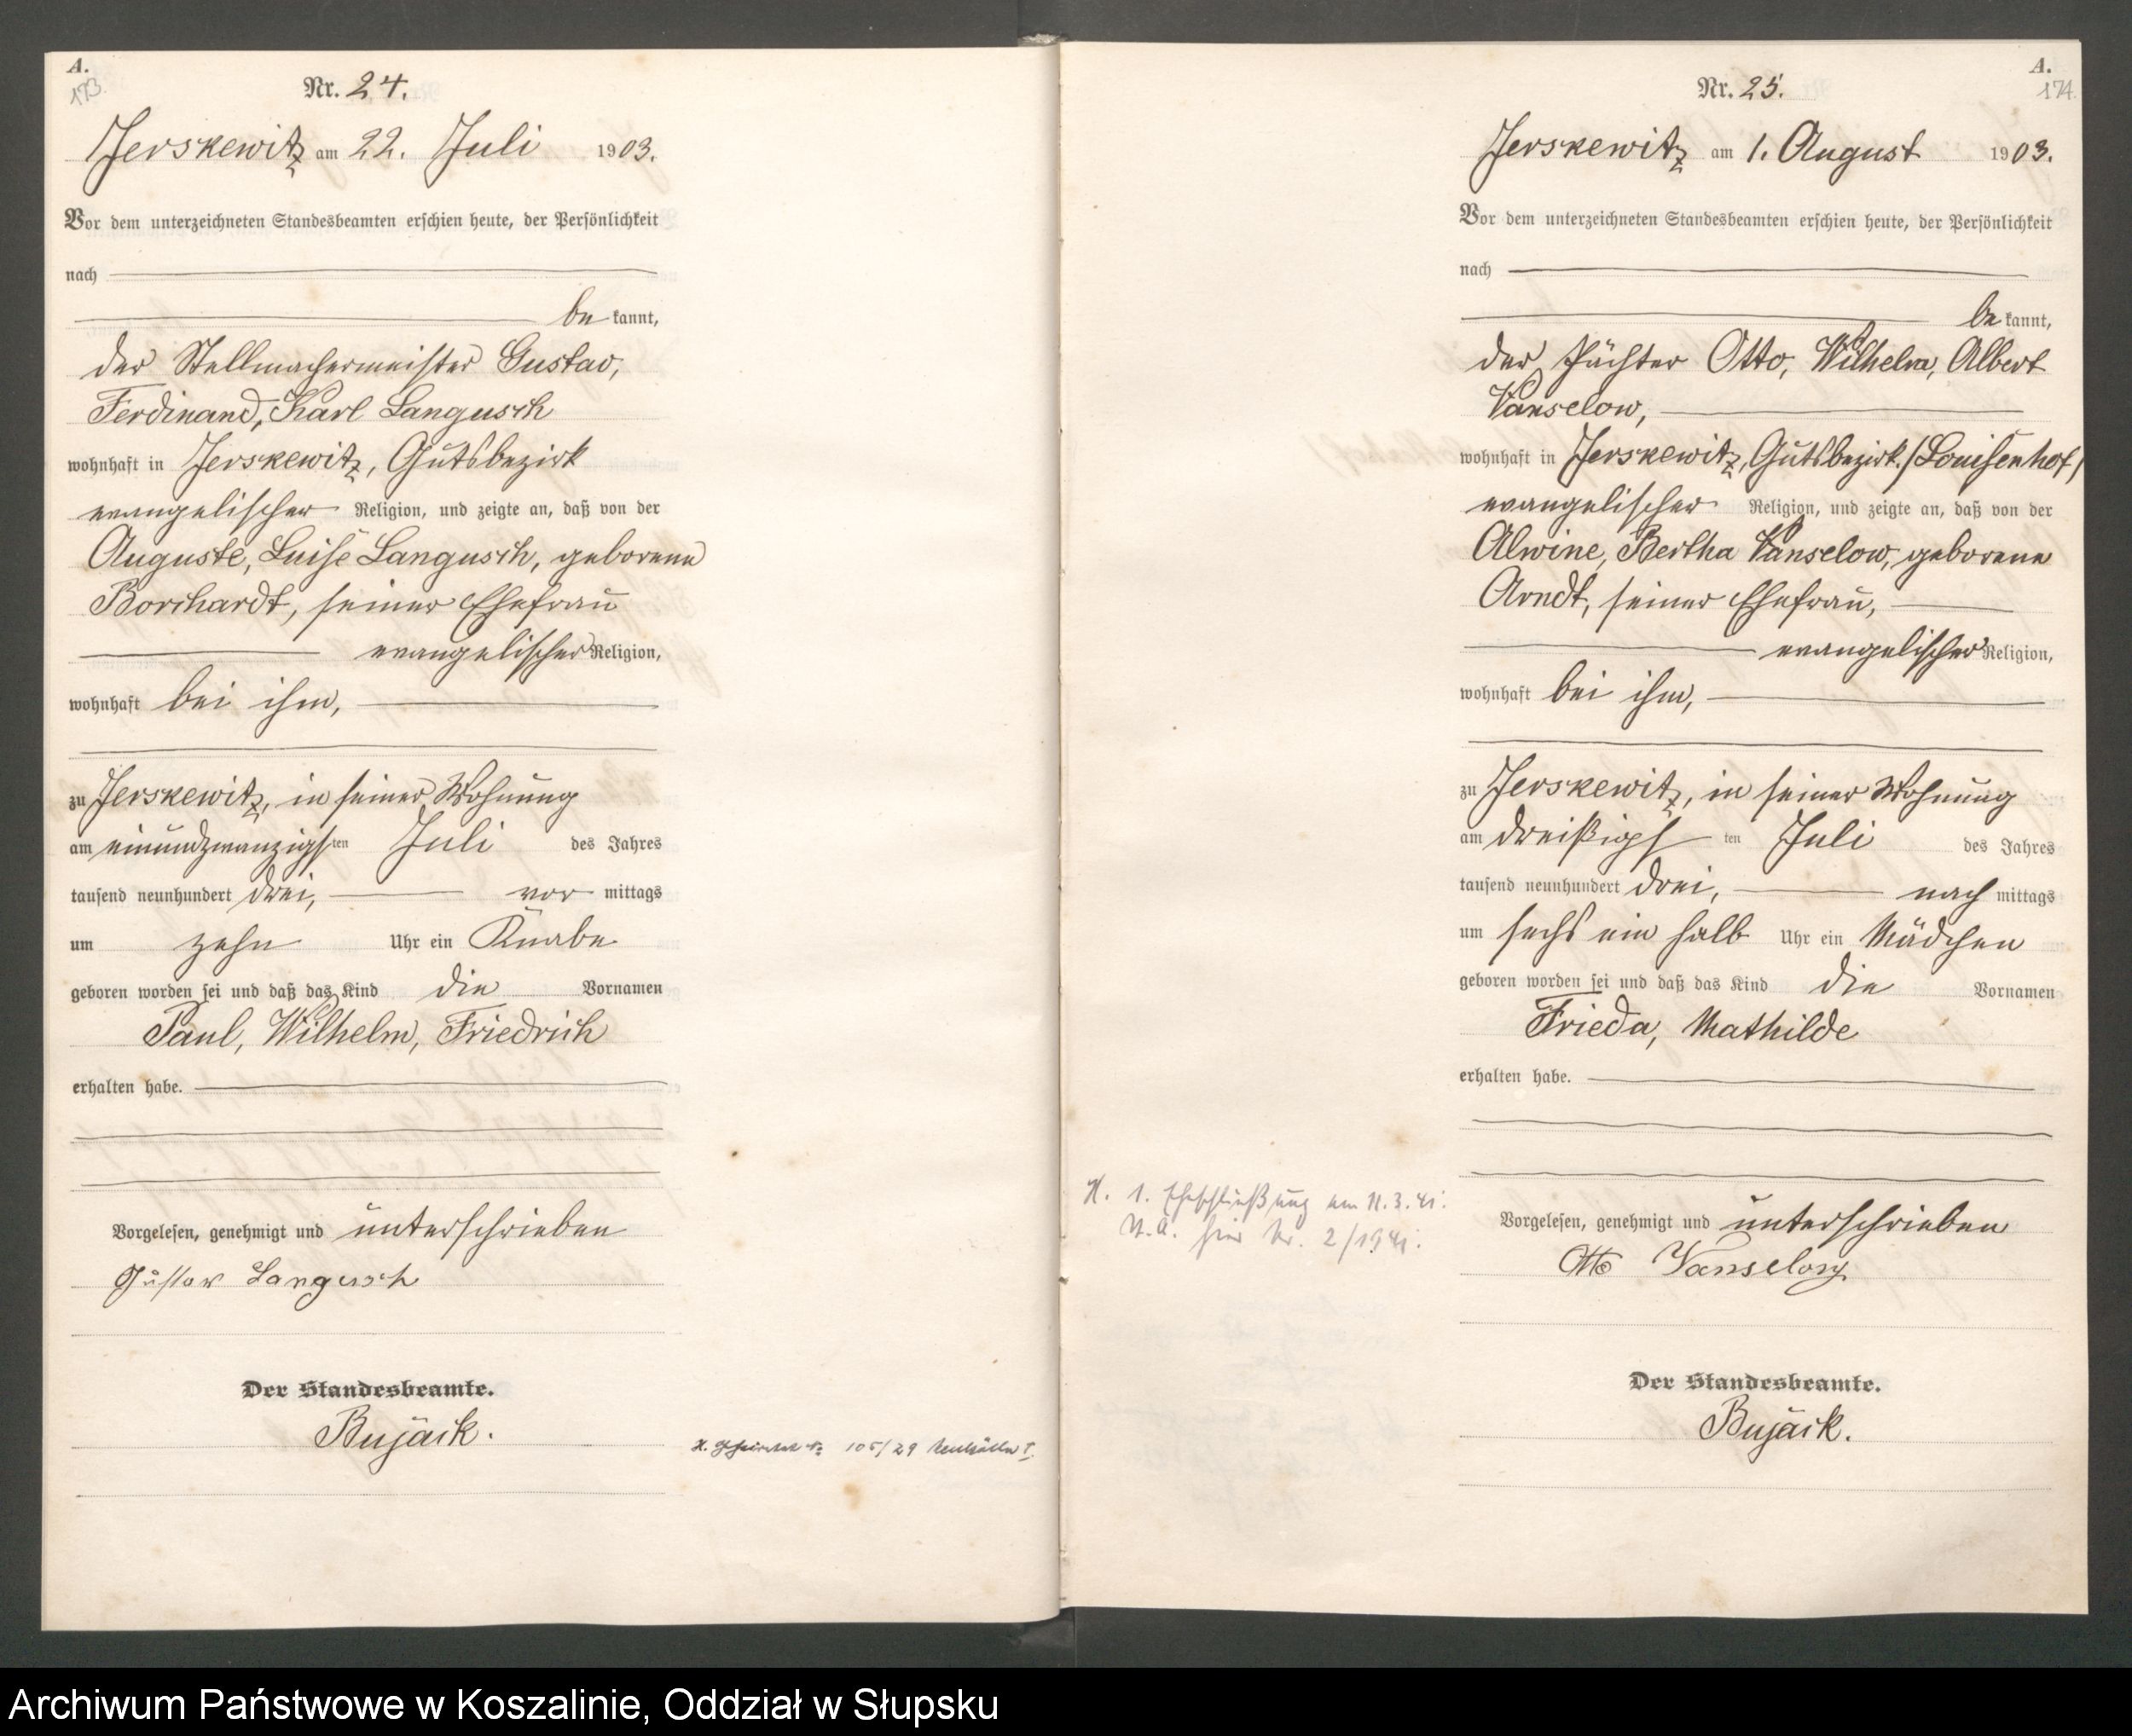 A.
173.
Nr. 24.
Jerskewitz am 22. Juli 1903.
Vor dem unterzeichneten Standesbeamten erschien heute, der Persönlichkeit
nach
be kannt,
der Stellmachermeister Gustav,
Ferdinand, Karl Langusch
wohnhaft in Jerskewitz, Gutsbezirk
evangelischer Religion, und zeigte an, daß von der
Auguste, Luise Langusch, geborene
Borchardt, seiner Ehefrau
evangelischer Religion,
wohnhaft bei ihm,
zu Jerskewitz, in seiner Wohnung
am einundzwanzigsten Juli des Jahres
tausend neunhundert drei, vor mittags
um zehn Uhr ein Knabe
geboren worden sei und daß das Kind die Vornamen
Paul, Wilhelm, Friedrich
erhalten habe.
Vorgelesen, genehmigt und unterschrieben
Gustav Langusch
Der Standesbeamte.
Bujack.
105/29 Neukölln I.
A.
174.
Nr. 25.
Jerskewitz am 1. August 1903.
Vor dem unterzeichneten Standesbeamten erschien heute, der Persönlichkeit
nach
be kannt,
der Pächter Otto, Wilhelm, Albert
Vanselow,
wohnhaft in Jerskewitz, Gutsbezirk /Louisenhof/
evangelischer Religion, und zeigte an, daß von der
Alwine, Bertha Vanselow, geborene
Arndt, seiner Ehefrau,
evangelischer Religion,
wohnhaft bei ihm,
zu Jerskewitz, in seiner Wohnung
am dreißigsten Juli des Jahres
tausend neunhundert drei, nach mittags
um sechs ein halb Uhr ein Mädchen
geboren worden sei und daß das Kind die Vornamen
Frieda, Mathilde
erhalten habe.
H. 1. Eheschließung am 11.3.41.
St.A. hier Nr. 2/1941.
Vorgelesen, genehmigt und unterschrieben
Otto Vanselow
Der Standesbeamte.
Bujack.
Archiwum Państwowe w Koszalinie, Oddział w Słupsku